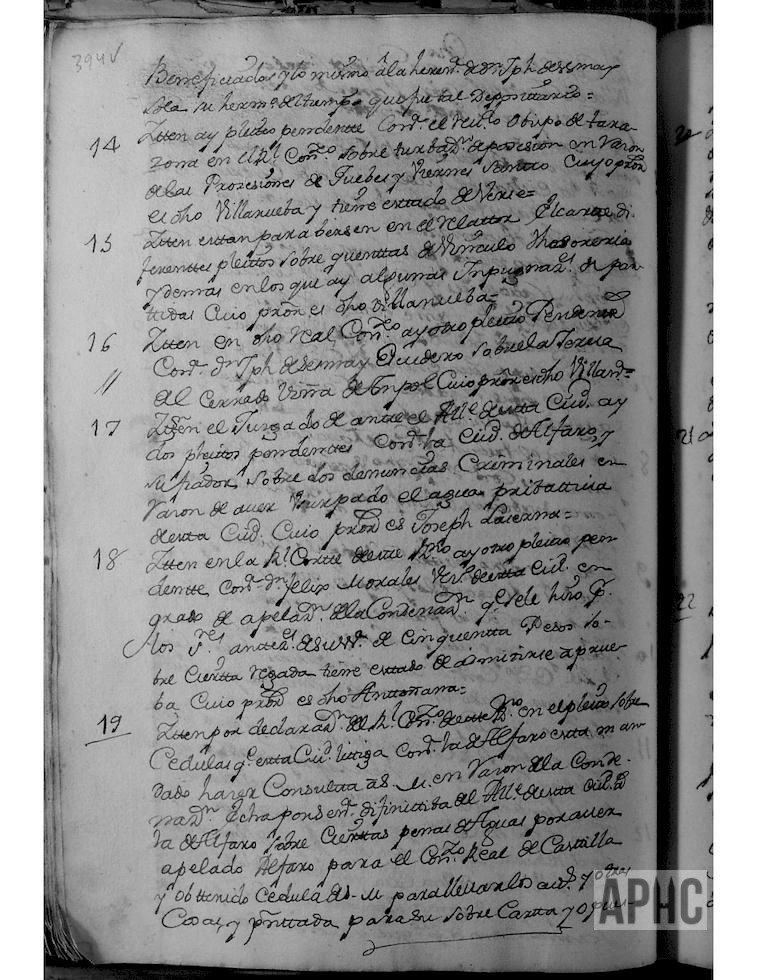 394v
Beneficiados y lo mismo a la heren.ª de dn Jph de ssmay
sola su herm.º del tiempo que fue tal Depositario=
14 Itten ay pleito pendentte Con.ª el Ill.mo Obispo de tara-
zona en el Rl Con.º sobre turbazn de posesion en Razon
de las Prozesiones de Juebes y Viernes Santto Cuyo pror
es dho Villanueba y tiene esttado de Verse=
15 Itten esttan para berse en el Relattor Alcaraz di-
ferenttes pleittos sobre quenttas de Vinculo thesoreria
y demas en los que ay algunas Inpugnaz.s de par-
tidas Cuio pror es dho Villanueba=
16 Itten en dho Real Con.º ay otro pleito Pendentte
Con.ª dn Jph de Sesmay Escudero sobre la Tercia
del Cerrado Viña de Inpol Cuio pror es dho Villan.ª=
17 Itten en el Juzgado de antte el Alle de estta Ciud. ay
dos pleittos pendenttes Con.ª la Ciud. de Alfaro, y
su fiador, sobre dos denuncias Criminales en
Razon de aver Usurpado el agua pribattiva
de estta Ciud. Cuio pror es Joseph Lacerna=
18 Itten en la Rl Cortte de estte Rno ay otro pleito pen-
dentte Con.ª dn Felix Morales Vez.º de estta Ciud. en
grado de apelazn de la Condenazn qe se le hizo pr
los Srs antezs de Vss.ª de Cinquentta Pesos so-
bre Ciertta Regada tiene esttado de admitirse a prue-
ba Cuio pror es dho Anttoñana=
19 Itten por declarazn del Rl Con.º de estte Rno en el pleito sobre
Cedulas qe estta Ciud. littiga Con.ª la de Alfaro estta man-
dado hazer Consulta a S. M. en Razon de la Conde-
nazn hecha por sen.ª difinittiba del Alle de estta Ciud. a
la de Alfaro sobre Cierttas penas de Aguas por aver
apelado Alfaro para el Con.º Real de Castilla
y obttenido Cedula de S. M. para llevar los auttos y otras
Cosas, y presenttada para su sobre Cartta y opusi-
APHC